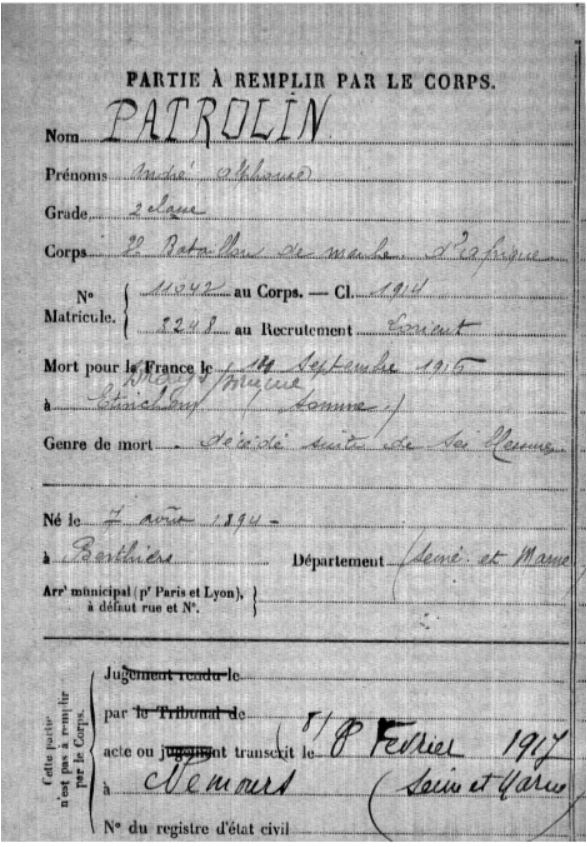 PARTIE À REMPLIR PAR LE CORPS.
Nom PATROLIN
Prénoms André Alphonse
Grade 2 classe
Corps 3e Bataillon de marche d'afrique
N° Matricule. 11042 au Corps. — Cl. 1914
8248 au Recrutement Lorient
Mort pour la France le Septembre 1916
à Etinchem (Somme)
Genre de mort décédé suites de ses blessures
Né le 7 août 1894
à Département (Seine et Marne)
Arrt municipal (pr Paris et Lyon),
à défaut rue et N°.
Cette partie n'est pas à remplir par le Corps.
Jugement rendu le
par le Tribunal de
acte ou jugement transcrit le 8 Fevrier 1917
à Nemours (Seine et Marne)
N° du registre d'état civil